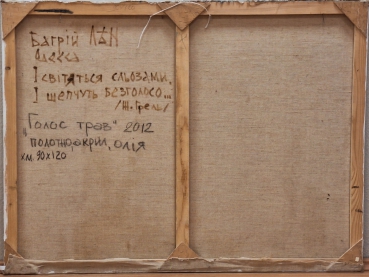 Багрій
Олекса
І світяться сльозами.
І шепчуть безголосо...
/Ж. Грель/
„Голос трав" 2012
полотно, акрил, олія
хм. 90х120